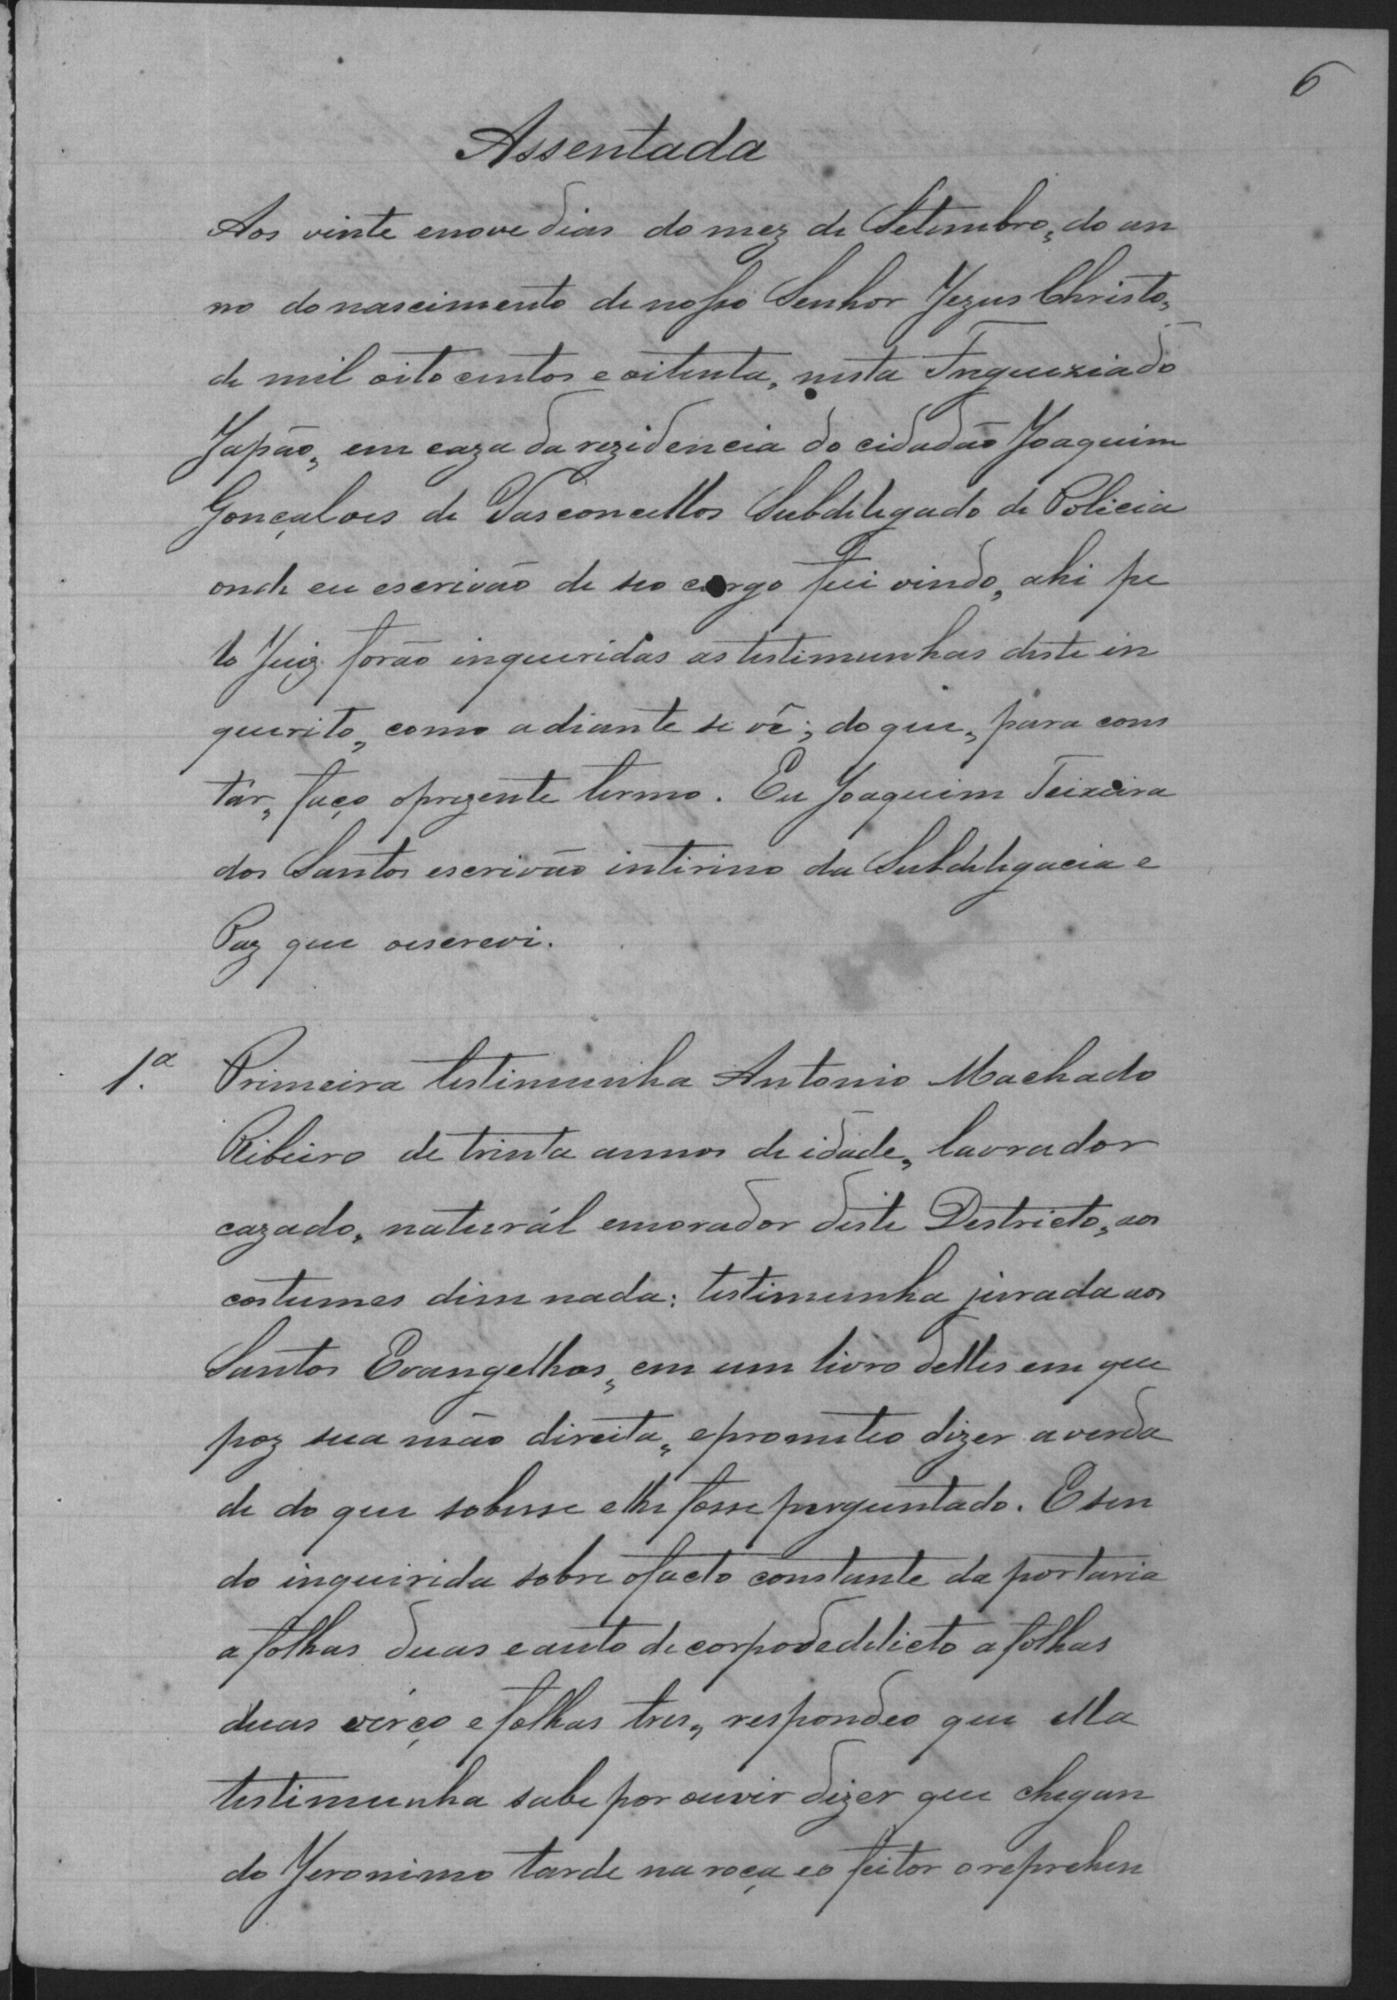 6
Assentada
Aos vinte enove dias do mez de Setembro, do an
no do nascimento de nosso Senhor Jezus Christo,
de mil oito centos e oitenta, nesta Freguezia do
Japão, em caza da rezidencia do cidadão Joaquim
Gonçalves de Vasconcellos Subdelegado de Policia
onde eu escrivão de seo cargo fui vindo, ahi pe
lo Juiz forão inqueridas as testimunhas deste in
querito, como adiante se vê; do que, para cons
tár, faço oprezente termo. Eu Joaquim Teixeira
dos Santos escrivão intirino da Subdelegacia e
Paz que oescrevi.
1.ª Primeira testimunha Antonio Machado
Ribeiro de trinta annos de idade, lavrador
cazado, naturál emorador deste Destricto, aos
costumes disse nada: testimunha jurada aos
Santos Evangelhos, em um livro delles em que
poz sua mão direita, eprometeo dizer averda
de do que sobesse elhe fosse perguntado. E sen
do inquirida sobre ofacto constante da portaria
a folhas duas eauto de corpodedelicto a folhas
duas verço e folhas tres, respondeo que ella
testimunha sabe por ouvir dizer que chegan
do Jeronimo tarde na roça eo feitor o reprehen